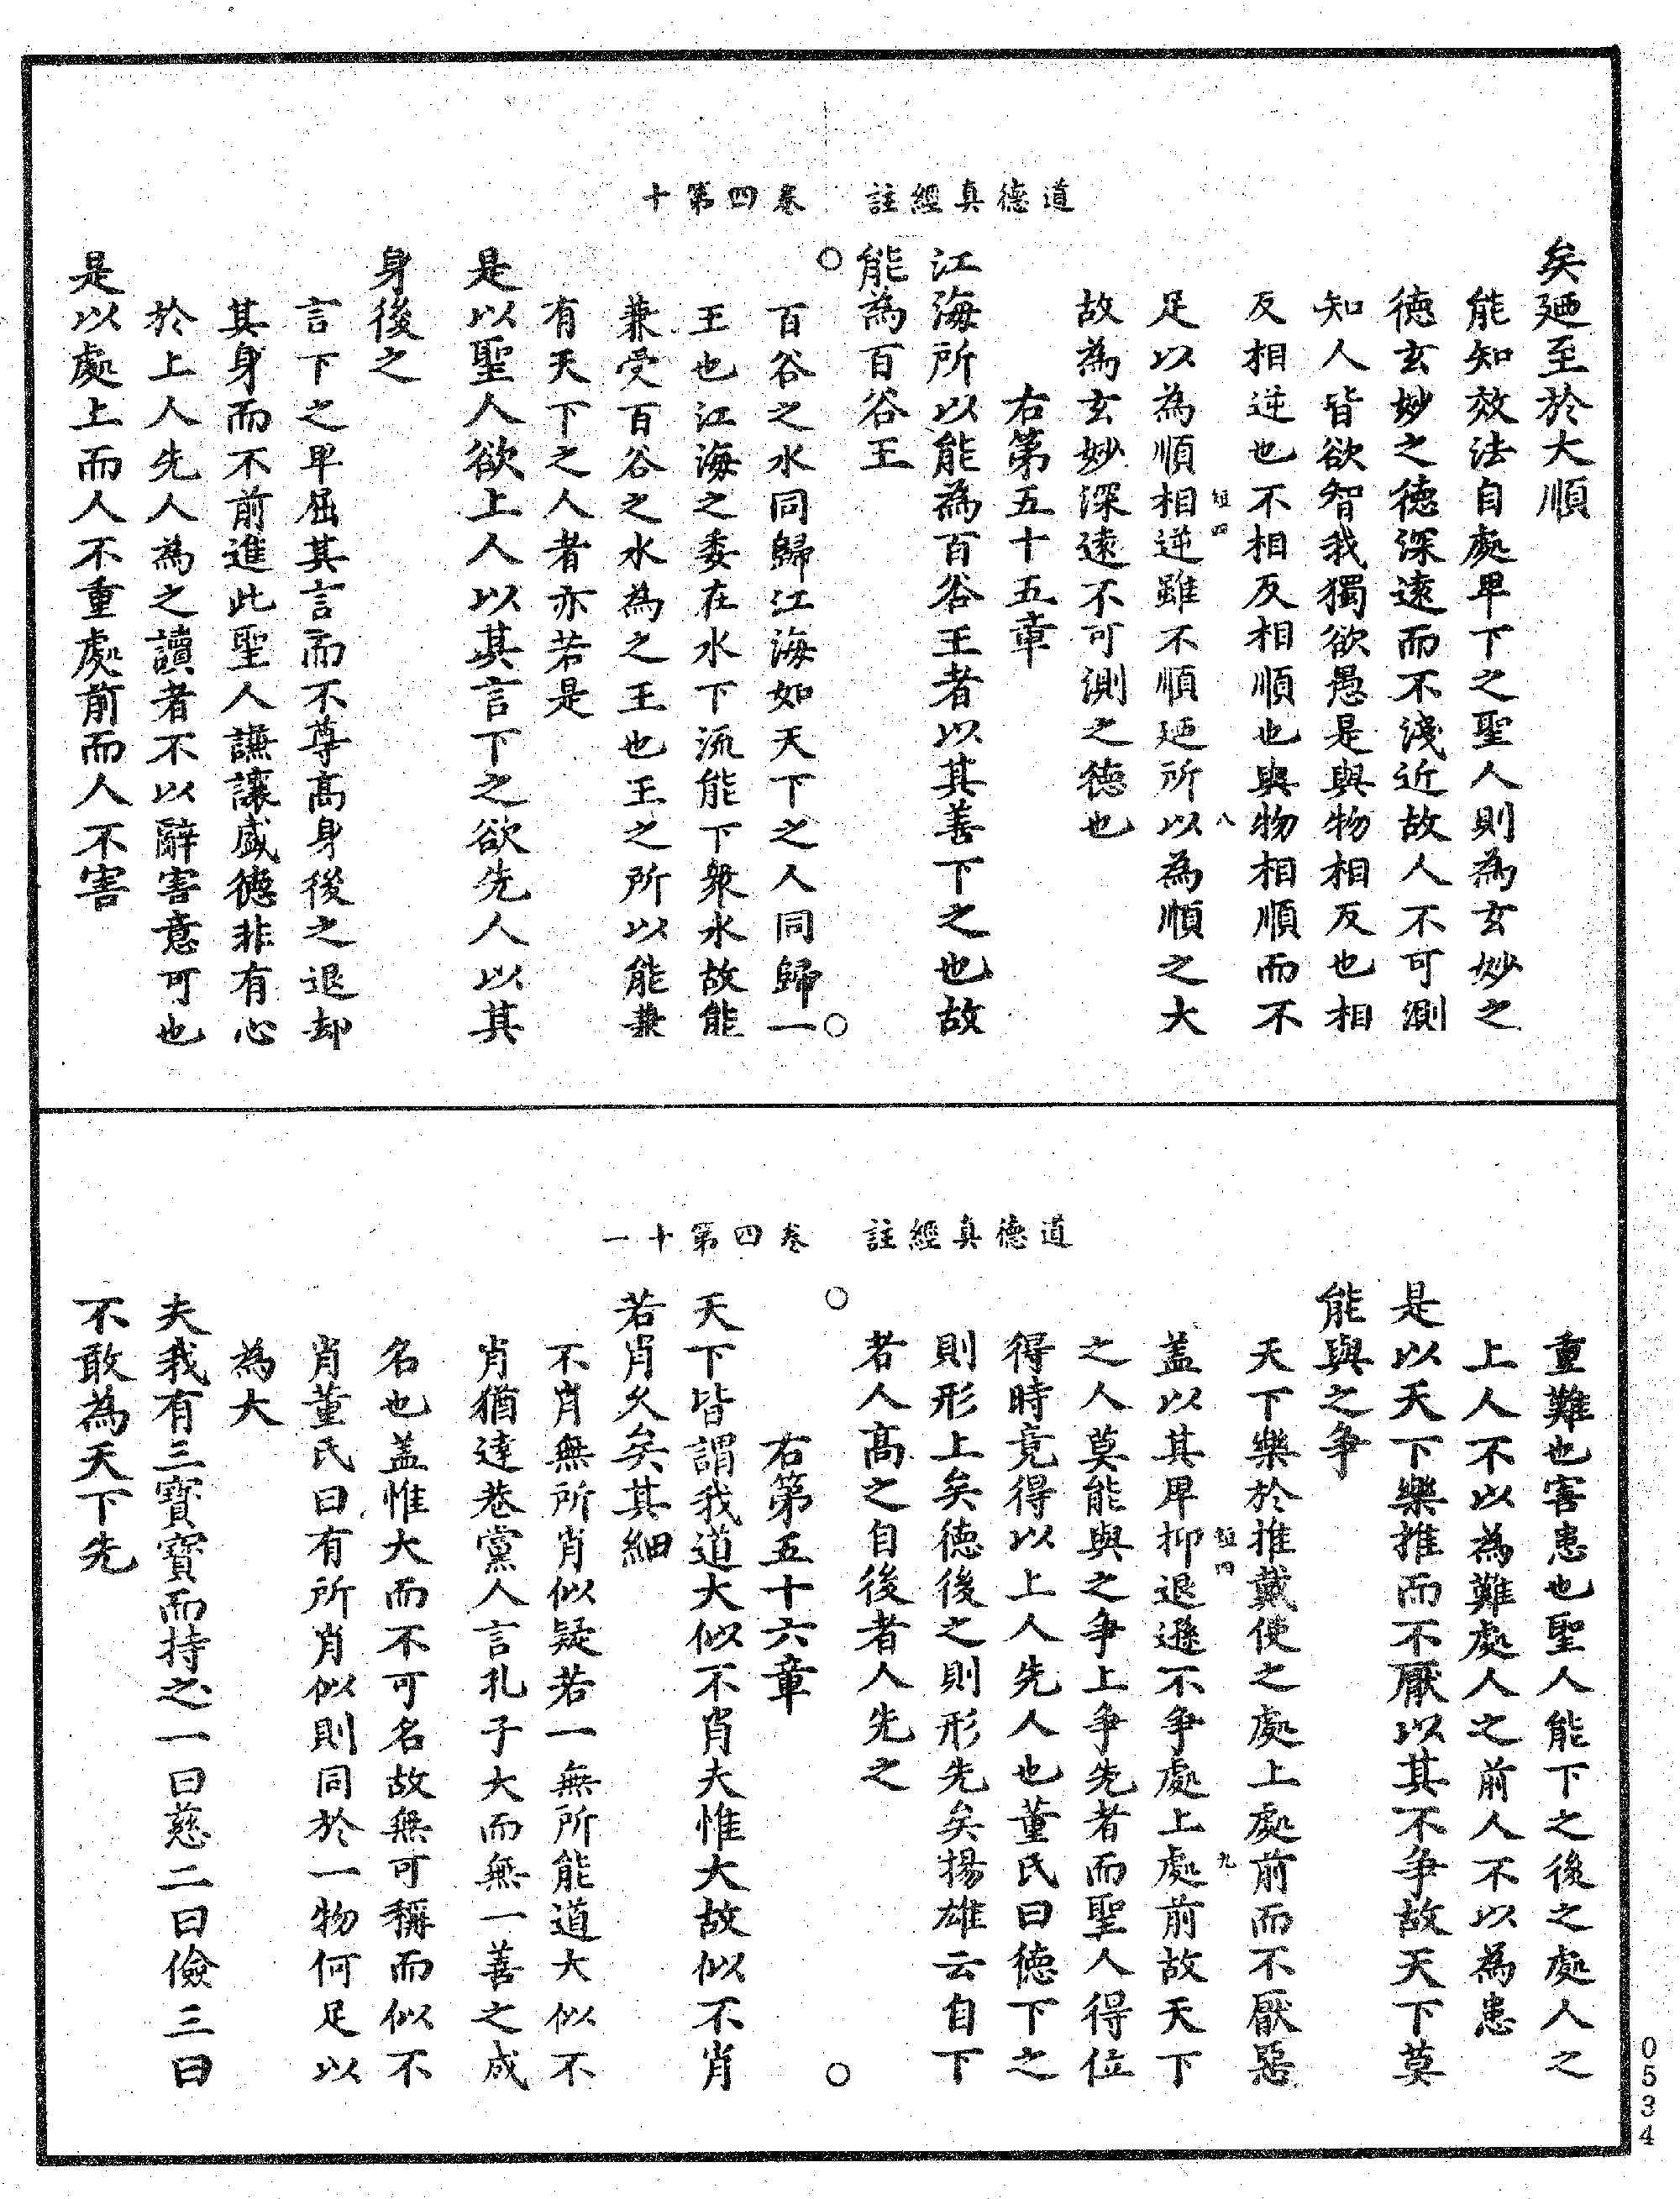 道德真經註　卷四第十
矣廼至於大順
能知效法自處卑下之聖人則為玄妙之
德玄妙之德深遠而不淺近故人不可測
知人皆欲智我獨欲愚是與物相反也相
反相逆也不相反相順也與物相順而不
短四　八
足以為順相逆雖不順廼所以為順之大
故為玄妙深遠不可測之德也
右第五十五章
江海所以能為百谷王者以其善下之也故
能為百谷王
百谷之水同歸江海如天下之人同歸一
王也江海之委在水下流能下衆水故能
兼受百谷之水為之王也王之所以能兼
有天下之人者亦若是
是以聖人欲上人以其言下之欲先人以其
身後之
言下之卑屈其言而不尊高身後之退却
其身而不前進此聖人謙讓盛德非有心
於上人先人為之讀者不以辭害意可也
是以處上而人不重處前而人不害
道德真經註　卷四第十一
重難也害患也聖人能下之後之處人之
上人不以為難處人之前人不以為患
是以天下樂推而不厭以其不爭故天下莫
能與之爭
天下樂於推戴使之處上處前而不厭惡
短四　九
盖以其卑抑退遜不爭處上處前故天下
之人莫能與之爭上爭先者而聖人得位
得時竟得以上人先人也董氏曰德下之
則形上矣德後之則形先矣揚雄云自下
者人高之自後者人先之
右第五十六章
天下皆謂我道大似不肖夫惟大故似不肖
若肖久矣其細
不肖無所肖似疑若一無所能道大似不
肖猶達巷黨人言孔子大而無一善之成
名也盖惟大而不可名故無可稱而似不
肖董氏曰有所肖似則同於一物何足以
為大
夫我有三寶寶而持之一曰慈二曰儉三曰
不敢為天下先
0534